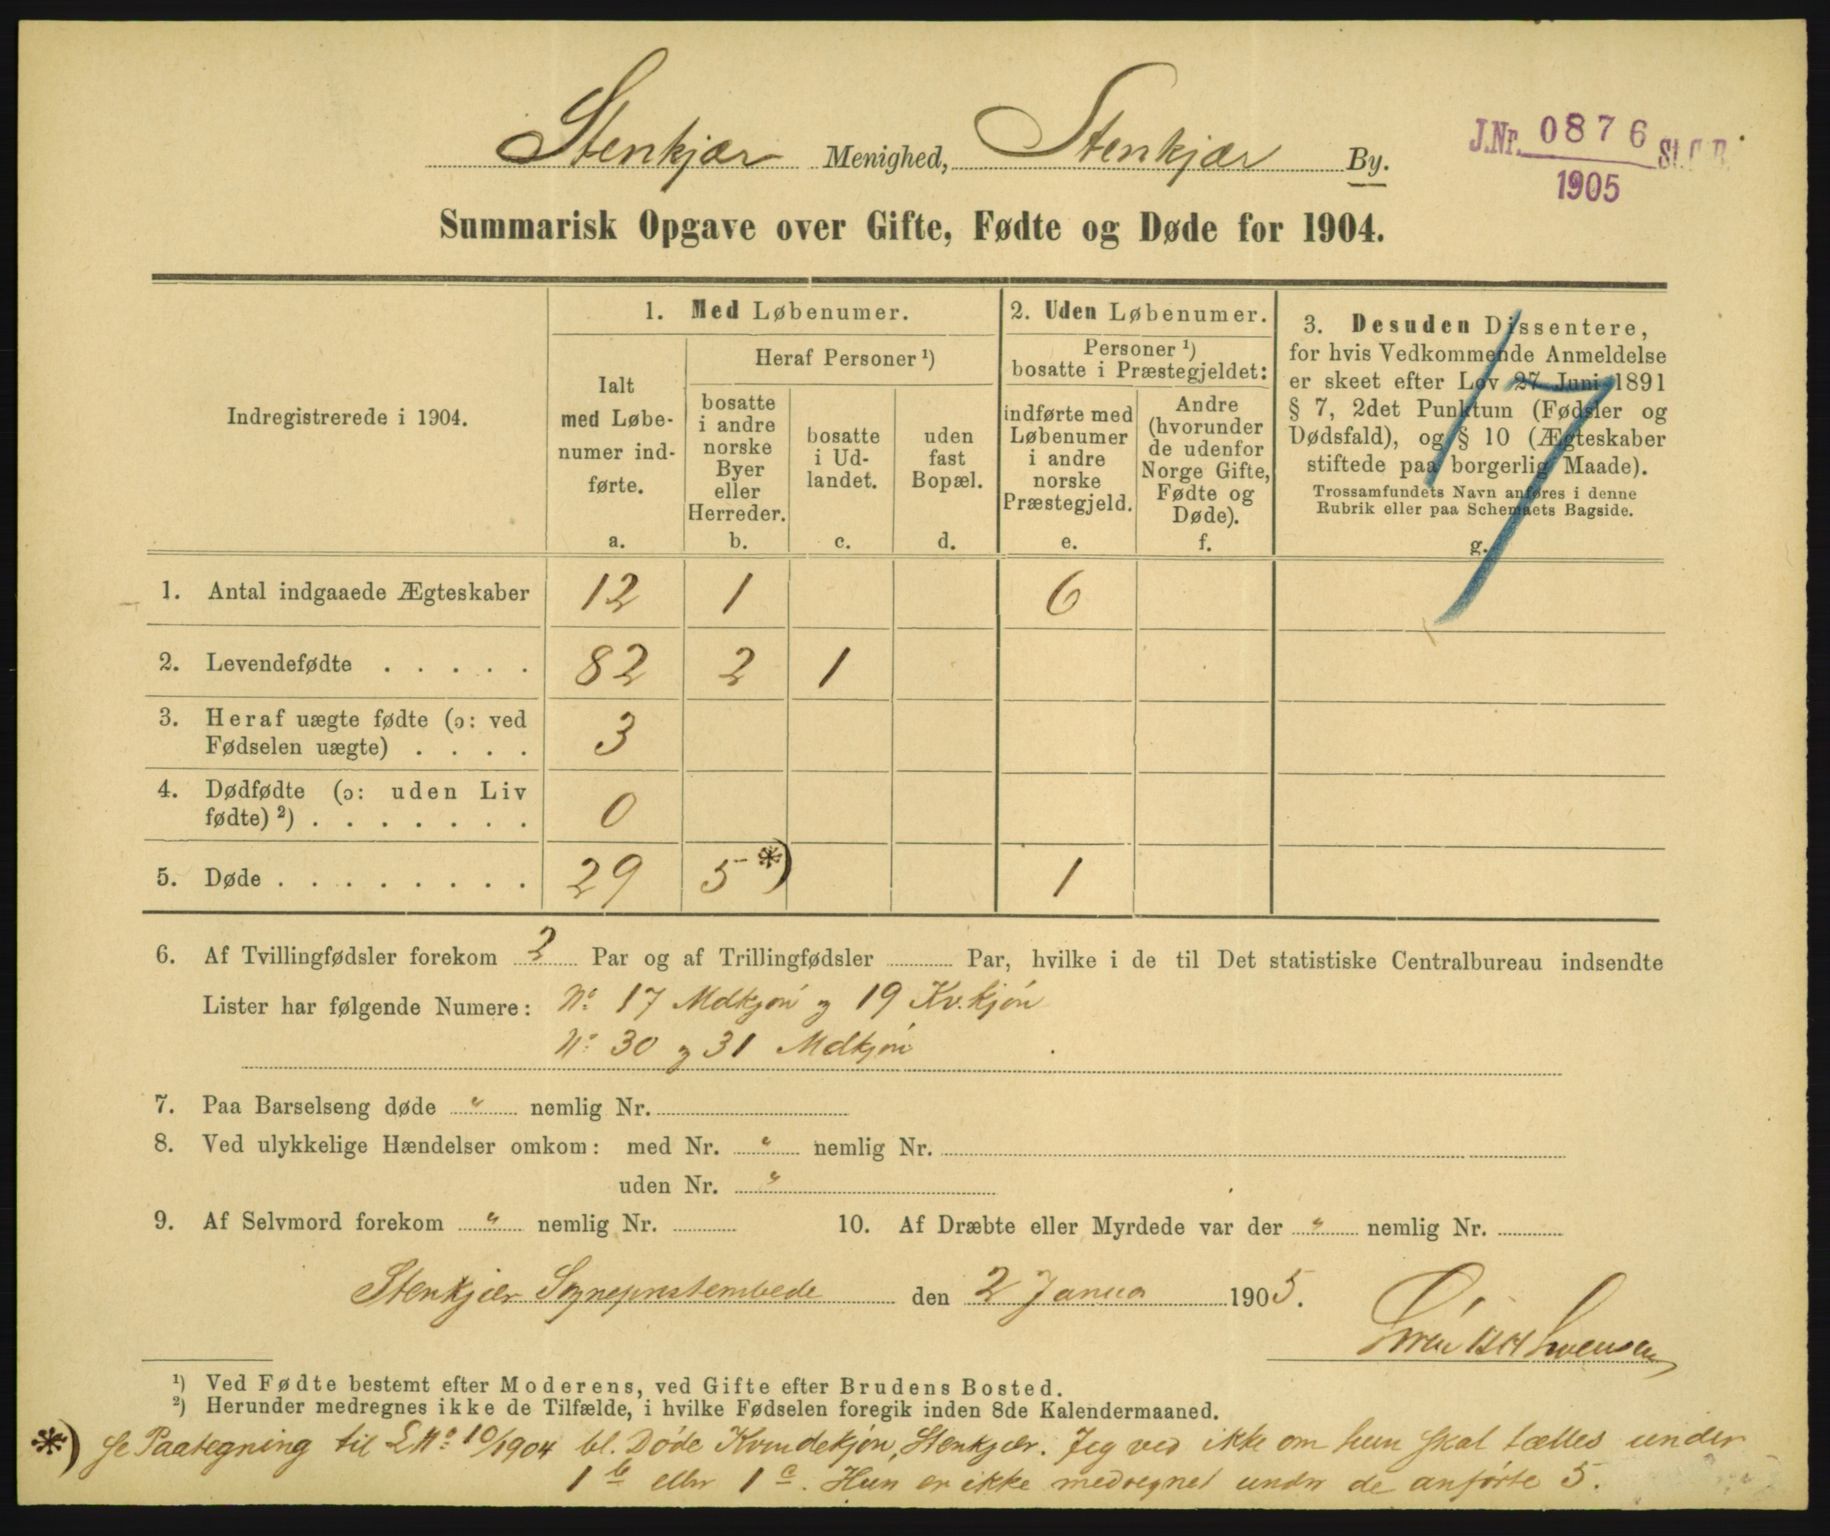 Stenkjær Menighed, Stenkjær By.
J.Nr. 0876 St.C.B.
1905
Summarisk Opgave over Gifte, Fødte og Døde for 1904.
Indregistrerede i 1904.
1. Med Løbenumer.
Ialt
med Løbe-
numer ind-
førte.
a.
Heraf Personer ¹)
bosatte
i andre
norske
Byer
eller
Herreder.
b.
bosatte
i Ud-
landet.
c.
uden
fast
Bopæl.
d.
2. Uden Løbenumer.
Personer ¹)
bosatte i Præstegjeldet:
indførte med
Løbenumer
i andre
norske
Præstegjeld.
e.
Andre
(hvorunder
de udenfor
Norge Gifte,
Fødte og
Døde).
f.
3. Desuden Dissentere,
for hvis Vedkommende Anmeldelse
er skeet efter Lov 27 Juni 1891
§ 7, 2det Punktum (Fødsler og
Dødsfald), og § 10 (Ægteskaber
stiftede paa borgerlig Maade).
Trossamfundets Navn anføres i denne
Rubrik eller paa Schemaets Bagside.
g.
17
1. Antal indgaaede Ægteskaber 12 1 6
2. Levendefødte . . . . . 82 2 1
3. Heraf uægte fødte (ɔ: ved
Fødselen uægte) . . . . 3
4. Dødfødte (ɔ: uden Liv
fødte) ²) . . . . . . . 0
5. Døde . . . . . . . . . 29 5 *) 1
6. Af Tvillingfødsler forekom 2 Par og af Trillingfødsler Par, hvilke i de til Det statistiske Centralbureau indsendte
Lister har følgende Numere: No. 17 Mdkjøn og 19 Kv.kjøn
No. 30 og 31 Mdkjøn
7. Paa Barselseng døde " nemlig Nr.
8. Ved ulykkelige Hændelser omkom: med Nr. " nemlig Nr.
uden Nr. "
9. Af Selvmord forekom " nemlig Nr. 10. Af Dræbte eller Myrdede var der " nemlig Nr.
Stenkjær Sogneprestembede den 2 Januar 1905.
Svensen
¹) Ved Fødte bestemt efter Moderens, ved Gifte efter Brudens Bosted.
²) Herunder medregnes ikke de Tilfælde, i hvilke Fødselen foregik inden 8de Kalendermaaned.
*) Se Paategning til LNo 10/1904 bl. Døde Kvindekjøn, Stenkjær. Jeg ved ikke om hun skal tælles under
1 b eller 1 c. Hun er ikke medregnet under de anførte 5.